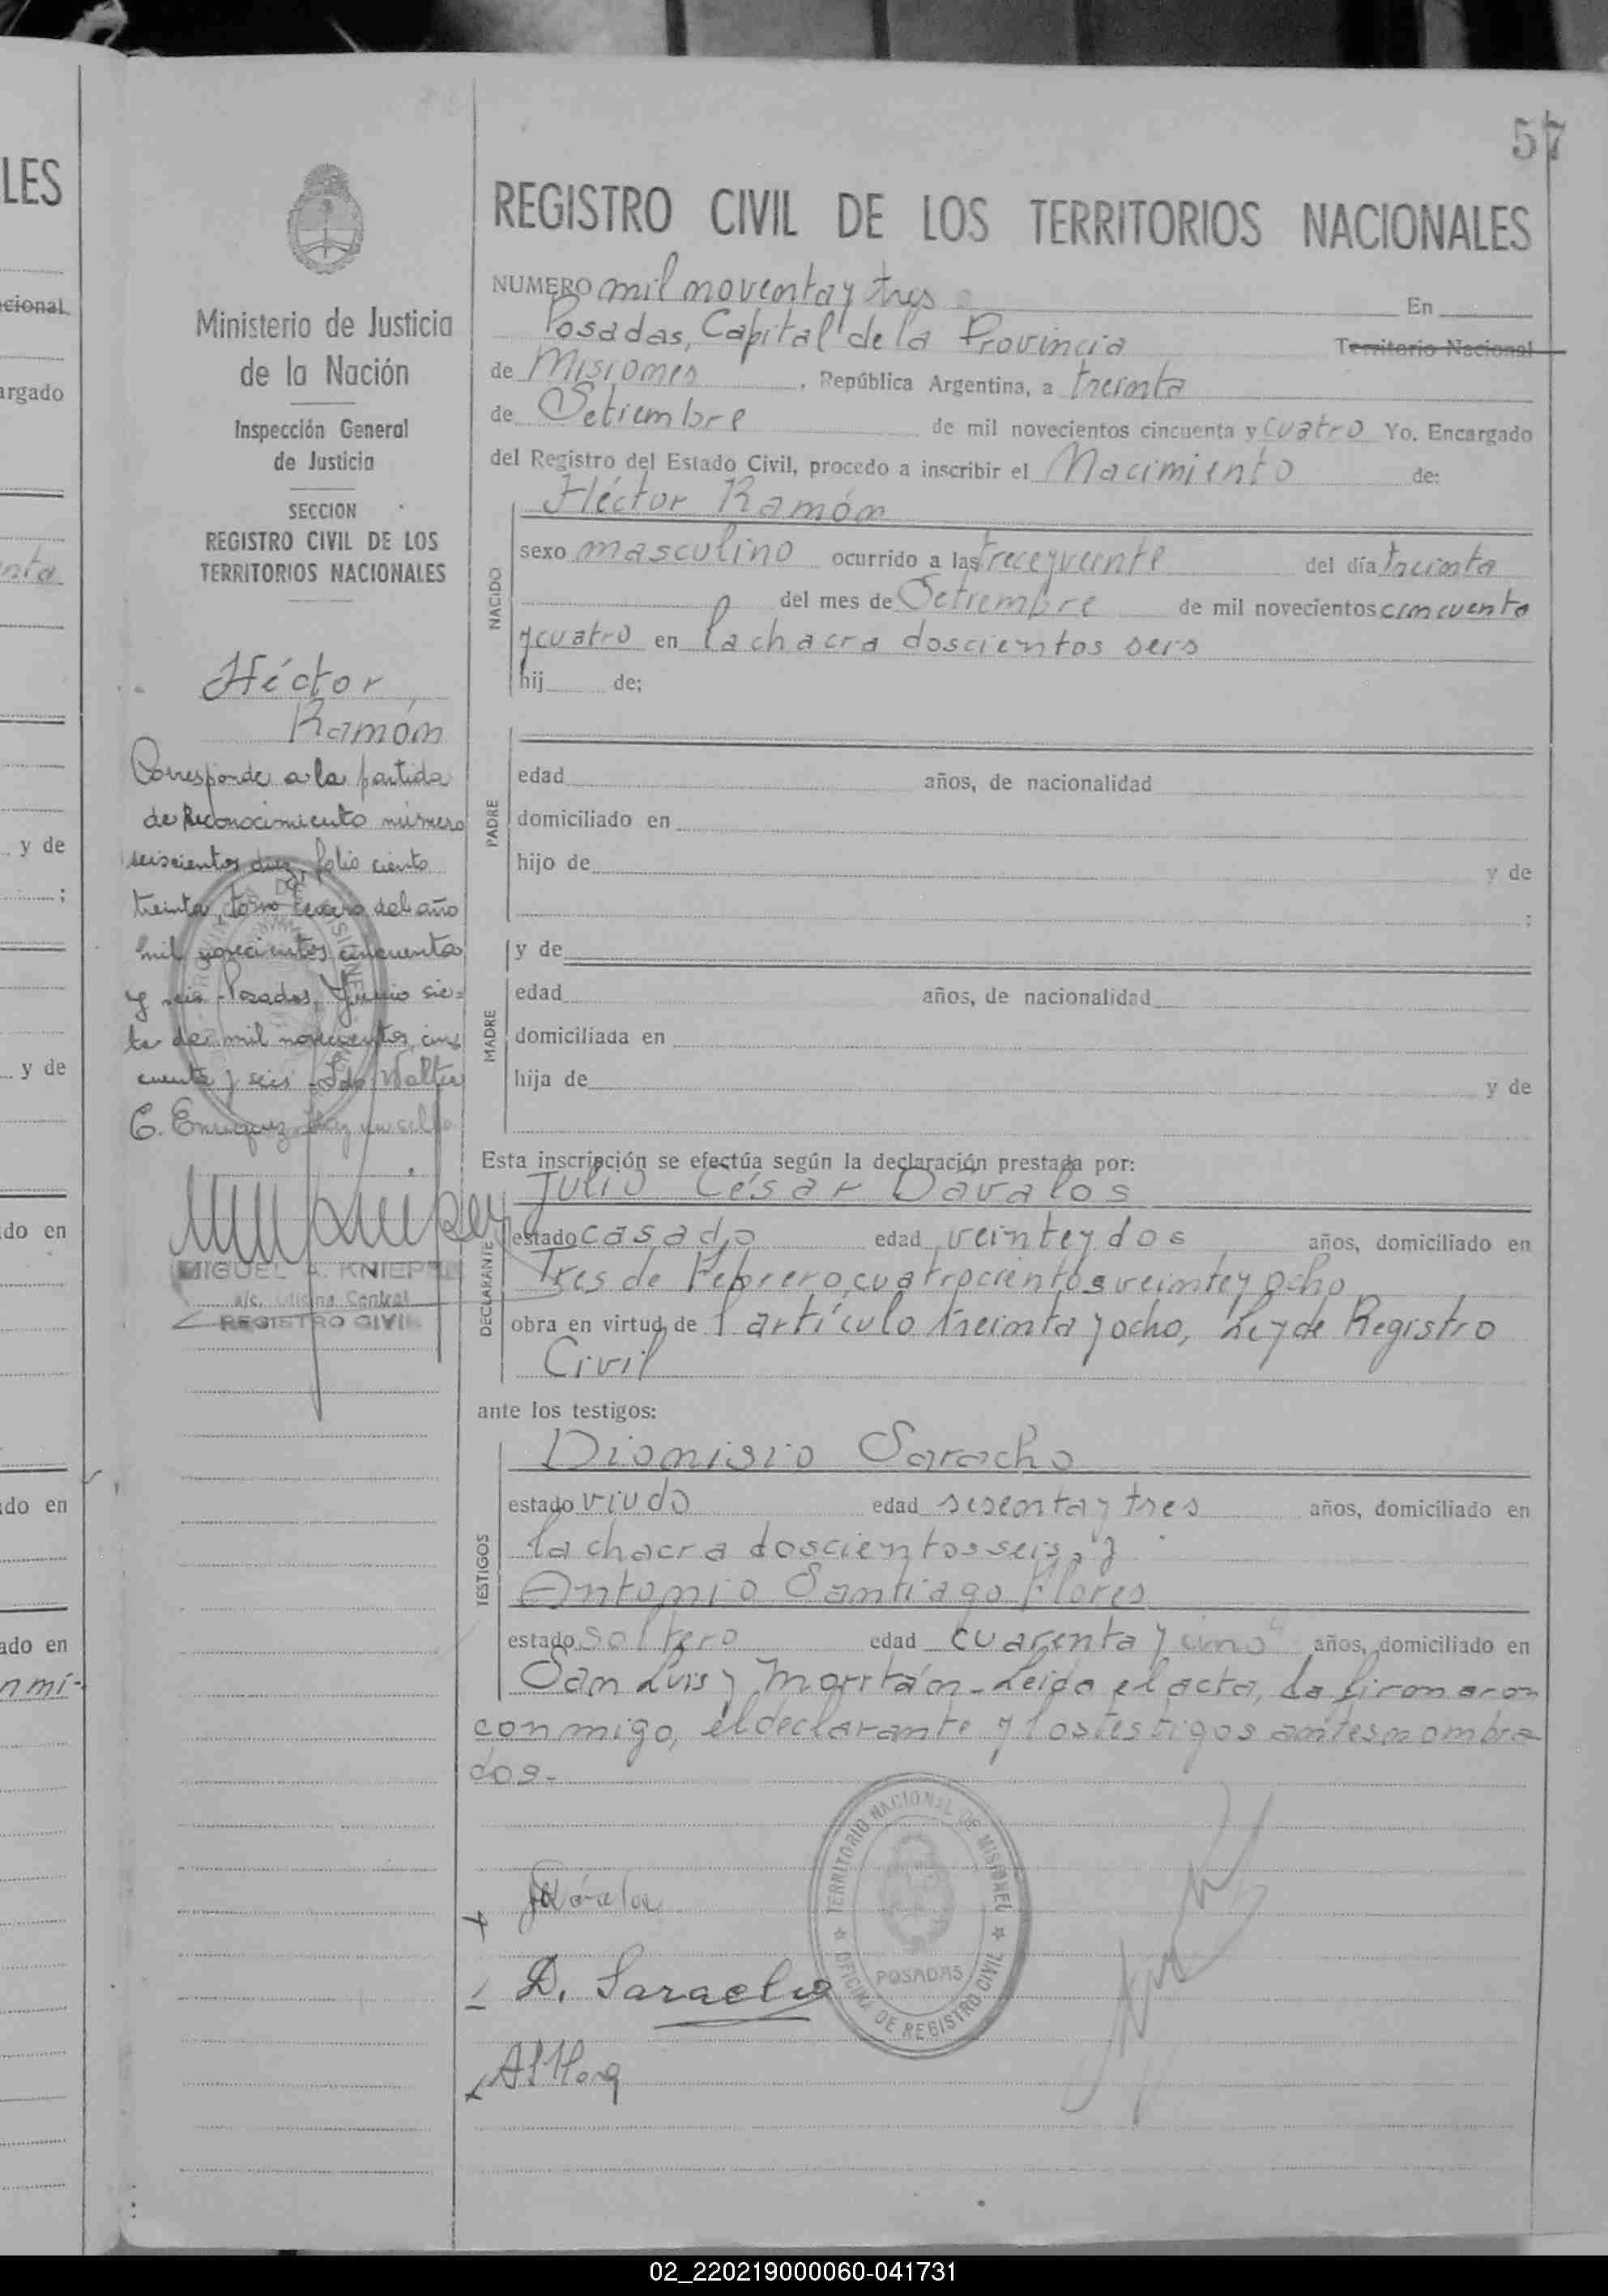 57
LES
REGISTRO CIVIL DE LOS TERRITORIOS NACIONALES
NUMERO mil noventa y tres En
Posadas, Capital de la Provincia Territorio Nacional
de Misiones, República Argentina, a treinta
de Setiembre de mil novecientos cincuenta y cuatro Yo. Encargado
del Registro del Estado Civil, procedo a inscribir el Nacimiento de:
Héctor Ramón
NACIDO
sexo masculino ocurrido a las trece y veinte del día treinta
del mes de Setiembre de mil novecientos cincuenta
y cuatro en la chacra doscientos seis
hij de;
PADRE
edad años, de nacionalidad
domiciliado en
hijo de y de
;
y de
MADRE
edad años, de nacionalidad
domiciliada en
hija de y de
Esta inscripción se efectúa según la declaración prestada por:
Julio César Davalos
DECLARANTE
estado casado edad veinte y dos años, domiciliado en
Tres de Febrero, cuatrocientos veinte y ocho
obra en virtud de l artículo treinta y ocho, Ley de Registro
Civil
ante los testigos:
TESTIGOS
Dionisio Saracho
estado viudo edad sesenta y tres años, domiciliado en
la chacra doscientos seis, y
Antonio Santiago Flores
estado soltero edad cuarenta y uno años, domiciliado en
San Luis y Moritán - Leida el acta, la firmaron
conmigo, el declarante y los testigos antes nombra
dos.-
D. Saracho
TERRITORIO NACIONAL DE MISIONES
POSADAS
OFICINA DE REGISTRO CIVIL
Ministerio de Justicia
de la Nación
Inspección General
de Justicia
SECCION
REGISTRO CIVIL DE LOS
TERRITORIOS NACIONALES
Héctor
Ramón
Corresponde a la partida
de Reconocimiento número
seiscientos diez, folio ciento
treinta, tomo tercero del año
mil novecientos cincuenta
y seis - Posadas, Junio sie=
te de mil novecientos cin
cuenta y seis - Fdo. Walter
C. Enriquez - Hay un sello
MIGUEL A. KNIEPS
a/c. Oficina Central
REGISTRO CIVIL
cional
argado
nta
y de
;
y de
do en
do en
ado en
n mi-
02_220219000060-041731